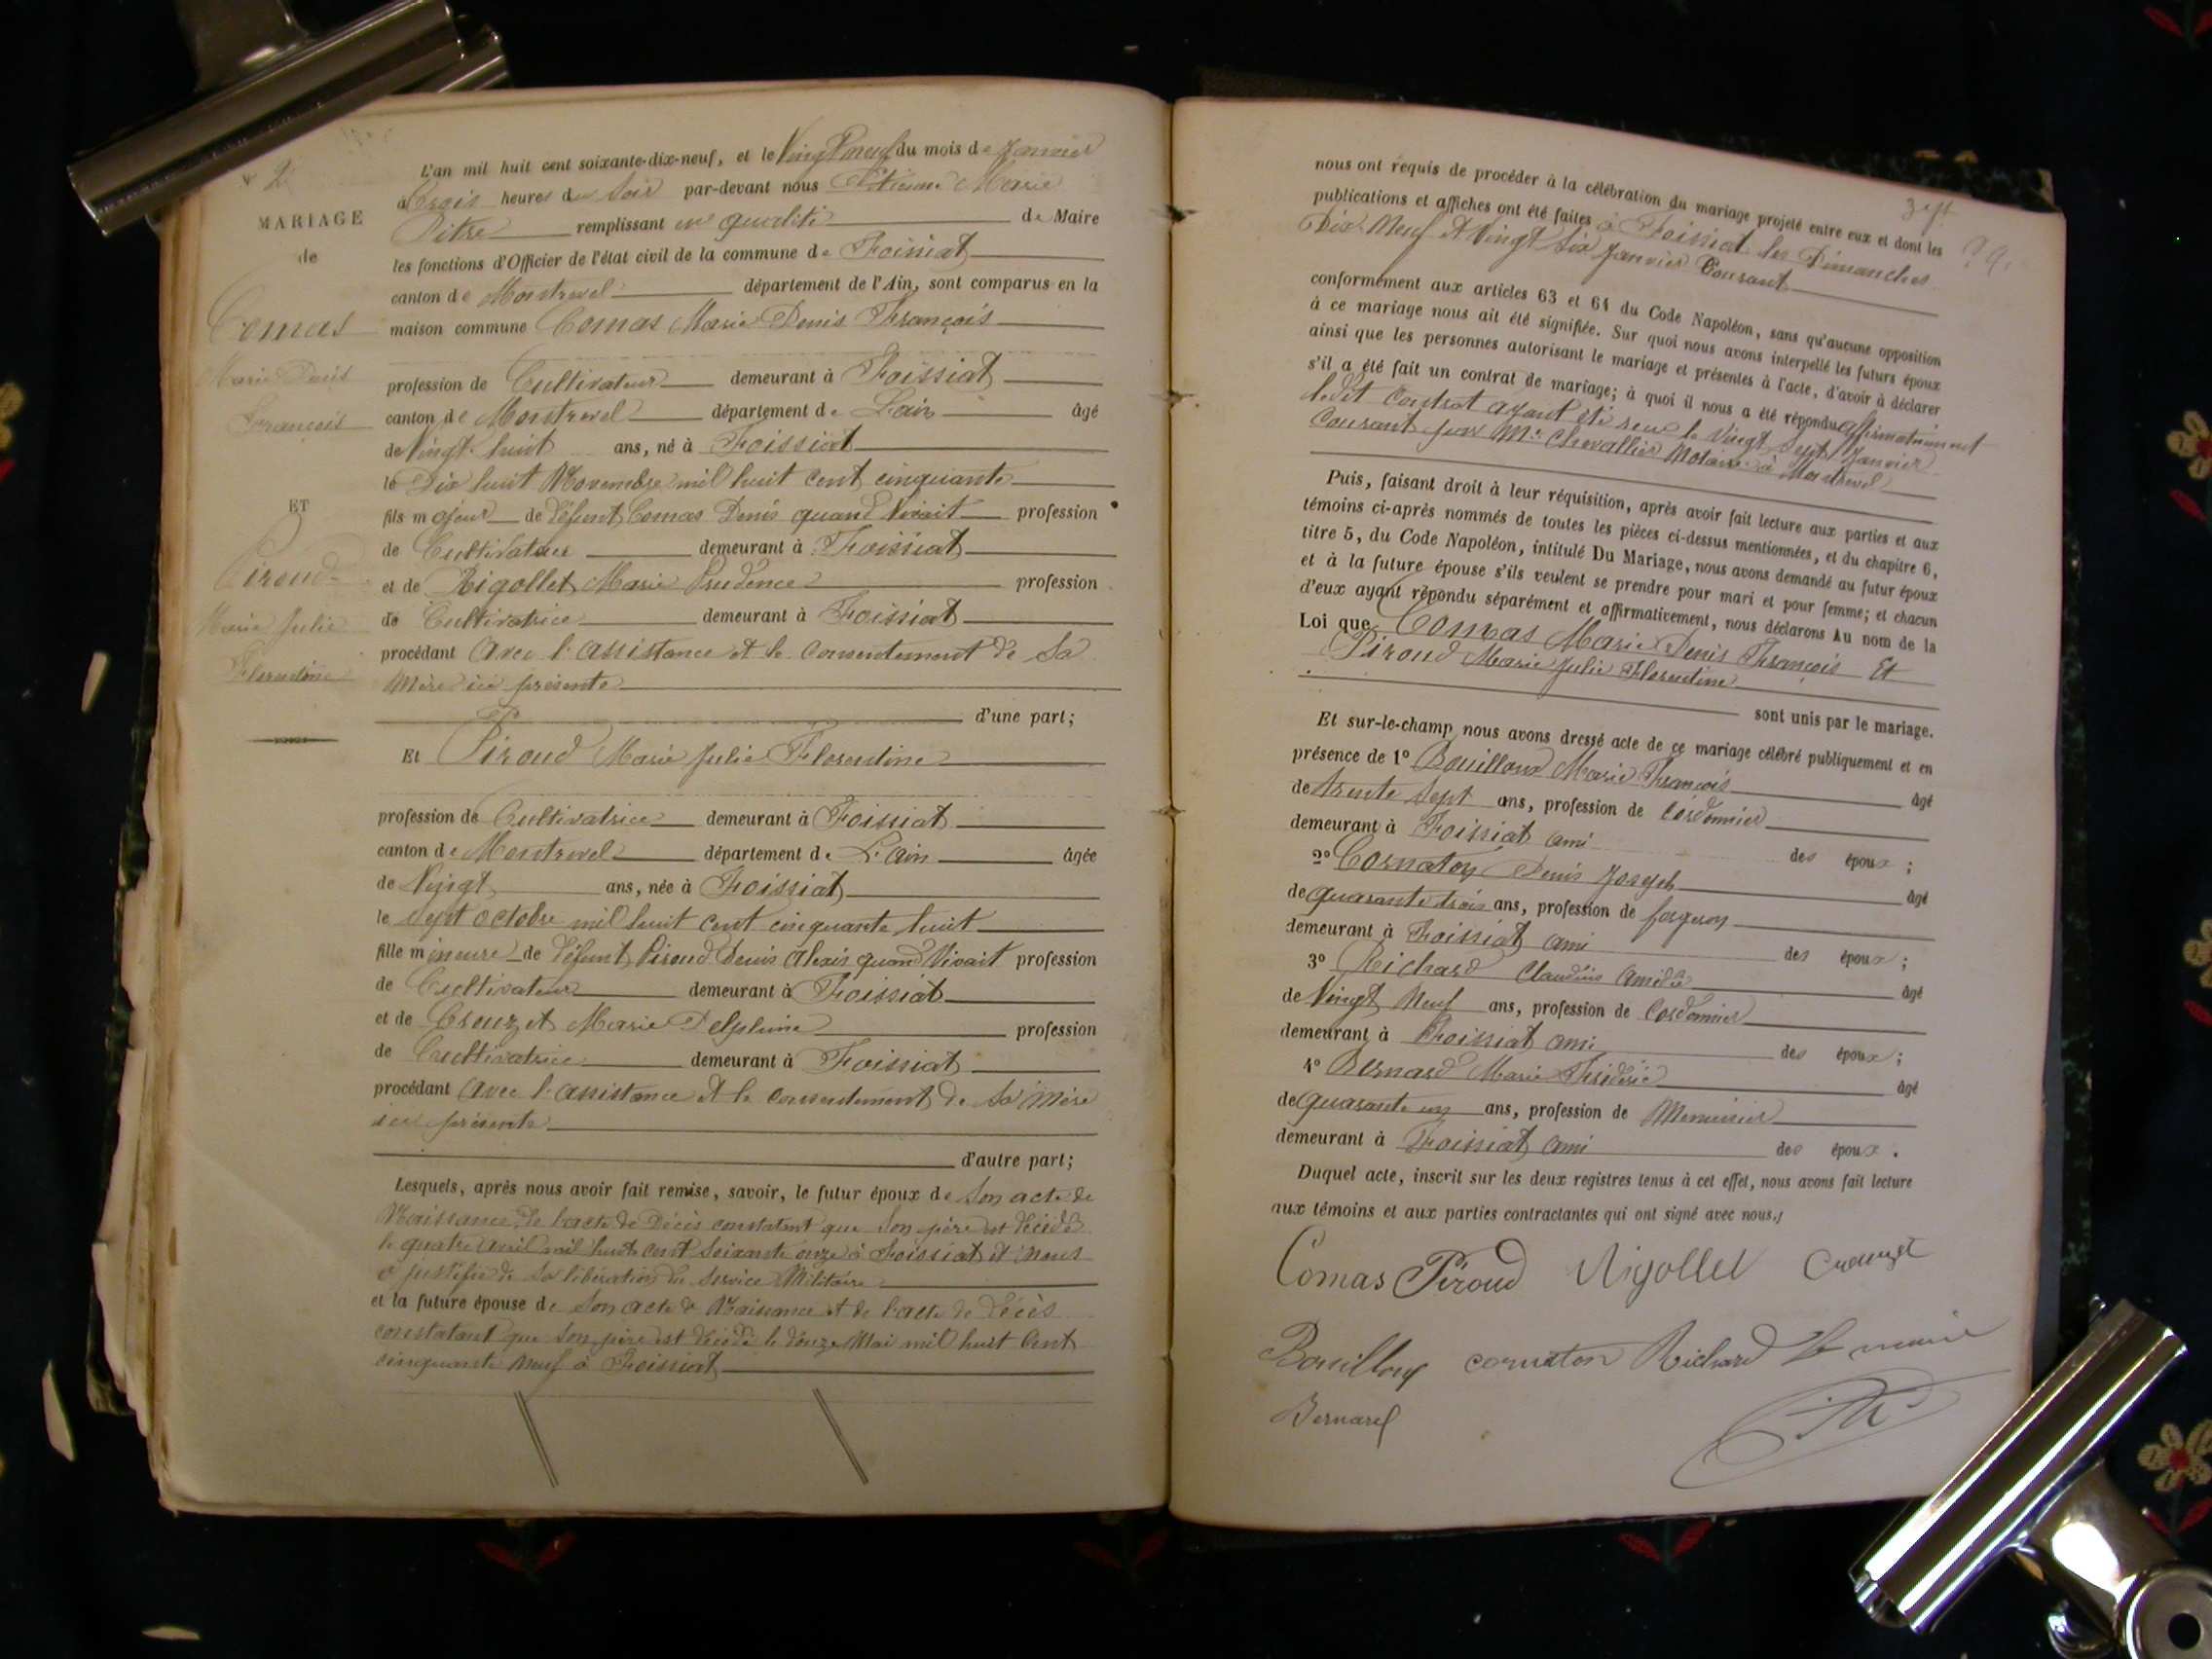 2
MARIAGE
de
Comas
Marie Denis
François
ET
Piroud
Marie Julie
Florentine
L'an mil huit cent soixante-dix-neuf, et le Vingt neuf du mois de Janvier
à Trois heures du Soir par-devant nous Etienne Marie
Pitre remplissant en qualité de Maire
les fonctions d'Officier de l'état civil de la commune de Foissiat
canton de Montrevel département de l'Ain, sont comparus en la
maison commune Comas Marie Denis François
profession de Cultivateur demeurant à Foissiat
canton de Montrevel département de L'ain âgé
de Vingt huit ans, né à Foissiat
le Dix huit Novembre mil huit cent cinquante
fils majeur de défunt Comas Denis quand Vivait profession
de Cultivateur demeurant à Foissiat
et de Rigollet Marie Prudence profession
de Cultivatrice demeurant à Foissiat
procédant avec l'assistance et le consentement de Sa
Mère ici présente
d'une part;
Et Piroud Marie Julie Florentine
profession de Cultivatrice demeurant à Foissiat
canton de Montrevel département de L'ain âgée
de Vingt ans, née à Foissiat
le Sept octobre mil huit cent cinquante huit
fille mineure de défunt Piroud Denis Alexis quand Vivait profession
de Cultivateur demeurant à Foissiat
et de Crouzet Marie Delphine profession
de Cultivatrice demeurant à Foissiat
procédant avec l'assistance et le consentement de Sa Mère
ici présente
d'autre part;
Lesquels, après nous avoir fait remise, savoir, le futur époux de Son acte de
Naissance, de l'acte de Décès constatant que Son père est décédé
le quatre avril mil huit cent soixante onze à Foissiat et nous
a justifié de Sa libération du Service Militaire
et la future épouse de Son acte de Naissance et de l'acte de décès
constatant que Son père est décédé le douze Mai mil huit Cent
cinquante neuf à Foissiat
nous ont requis de procéder à la célébration du mariage projeté entre eux et dont les
publications et affiches ont été faites à Foissiat les Dimanches
Dix Neuf et Vingt Six Janvier Courant
conformément aux articles 63 et 64 du Code Napoléon, sans qu'aucune opposition
à ce mariage nous ait été signifiée. Sur quoi nous avons interpellé les futurs époux
ainsi que les personnes autorisant le mariage et présentes à l'acte, d'avoir à déclarer
s'il a été fait un contrat de mariage; à quoi il nous a été répondu affirmativement
ledit Contrat ayant été reçu le Vingt Sept Janvier
Courant par Me Chevallier Notaire à Montrevel
Puis, faisant droit à leur réquisition, après avoir fait lecture aux parties et aux
témoins ci-après nommés de toutes les pièces ci-dessus mentionnées, et du chapitre 6,
titre 5, du Code Napoléon, intitulé Du Mariage, nous avons demandé au futur époux
et à la future épouse s'ils veulent se prendre pour mari et pour femme; et chacun
d'eux ayant répondu séparément et affirmativement, nous déclarons Au nom de la
Loi que Comas Marie Denis François Et
Piroud Marie Julie Florentine
sont unis par le mariage.
Et sur-le-champ nous avons dressé acte de ce mariage célébré publiquement et en
présence de 1° Bouilloux Marie François âgé
de trente Sept ans, profession de Cordonnier
demeurant à Foissiat ami des époux;
2° Cornaton Denis Joseph âgé
de quarante trois ans, profession de forgeron
demeurant à Foissiat ami des époux;
3° Richard Claudius Amédée âgé
de Vingt Neuf ans, profession de Cordonnier
demeurant à Foissiat ami des époux;
4° Bernard Marie Fréderic âgé
de quarante un ans, profession de Menuisier
demeurant à Foissiat ami des époux.
Duquel acte, inscrit sur les deux registres tenus à cet effet, nous avons fait lecture
aux témoins et aux parties contractantes qui ont signé avec nous./
Comas Piroud Rigollet Crouzet
Bouilloux cornaton Richard le maire
Bernard